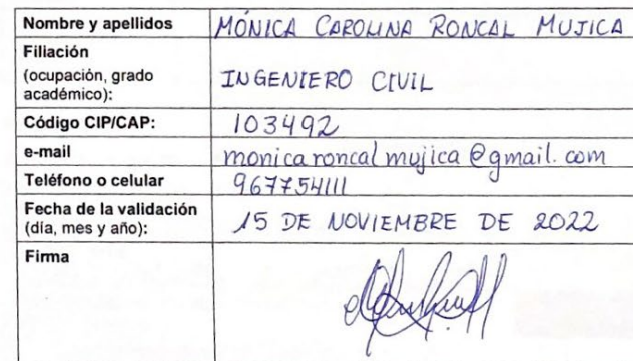 Nombre y apellidos MÓNICA CAROLINA RONCAL MUJICA
Filiación
(ocupación, grado
académico): INGENIERO CIVIL
Código CIP/CAP: 103492
e-mail monicaroncalmujica@gmail.com
Teléfono o celular 967754111
Fecha de la validación
(día, mes y año): 15 DE NOVIEMBRE DE 2022
Firma